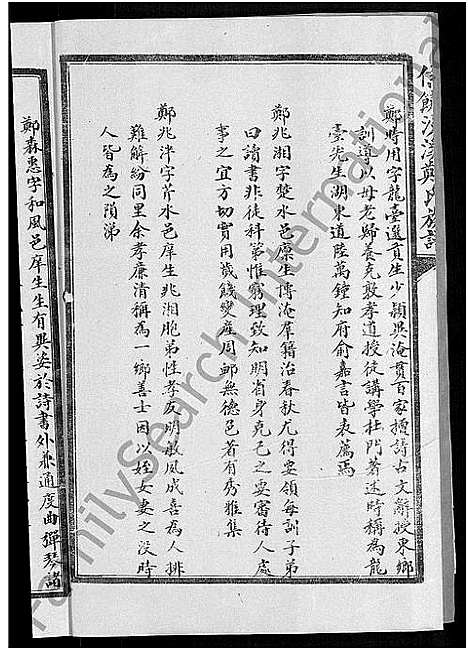 信饒沙溪鄭氏族譜
鄭時用字龍臺選貢生少穎異淹貫百家擅詩古文辭授東鄉
訓導以母老歸養克敦孝道授徒講學杜門著述時稱為龍
臺先生湖東道陸萬鍾知府俞嘉言皆表薦焉
鄭兆湘字楚水邑廩生博淹群籍治春秋尤得要領每訓子弟
曰讀書非徒科第惟窮理致知明省身克己之要審待人處
事之宜方切實用歲饑變産周卹無德色著有秀雅集
鄭兆泮字芹水邑庠生兆湘胞弟性孝友明敏風成喜為人排
難解紛同里余孝廉清稱為一鄉善士因以姪女妻之没時
人皆為之隕涕
鄭森惠字和風邑庠生生有異姿於詩書外兼通度曲彈琴諸
FamilySearch International